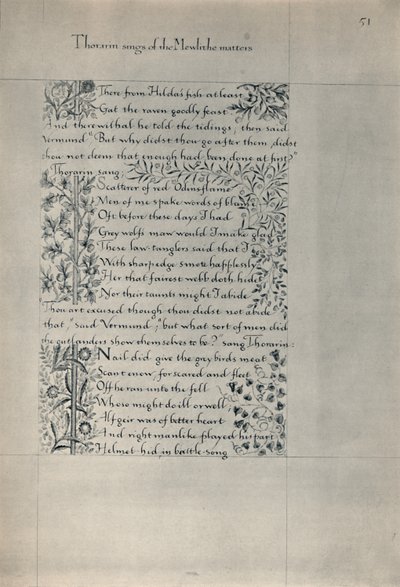 51
Thorarin sings of the Mewlithe matters
There from Hilda's fish at least
Gat the raven goodly feast
And therewithal he told the tidings, then said
Vermund "But why didst thou go after them, didst
thou not deem that enough had been done at first?"
Thorarin sang:
Scatterer of red Odinsflame
Men of me spake words of blame
Oft before these days I had
Grey wolf's maw would I make glad
These law-tanglers said that I
With sharp edge smote haplessly
Her that fairest webb doth hide
Nor their taunts might I abide
"Thou art excused though thou didst not abide
that," said Vermund; "but what sort of men did
the outlanders show themselves to be?" sang Thorarin:
Nail did give the grey birds meat
Scant enow, for scared and fleet
Off he ran unto the fell
Whoso might do ill or well,
Alfgeir was of better heart
And right manlike played his part
Helmet hid, in battle-song